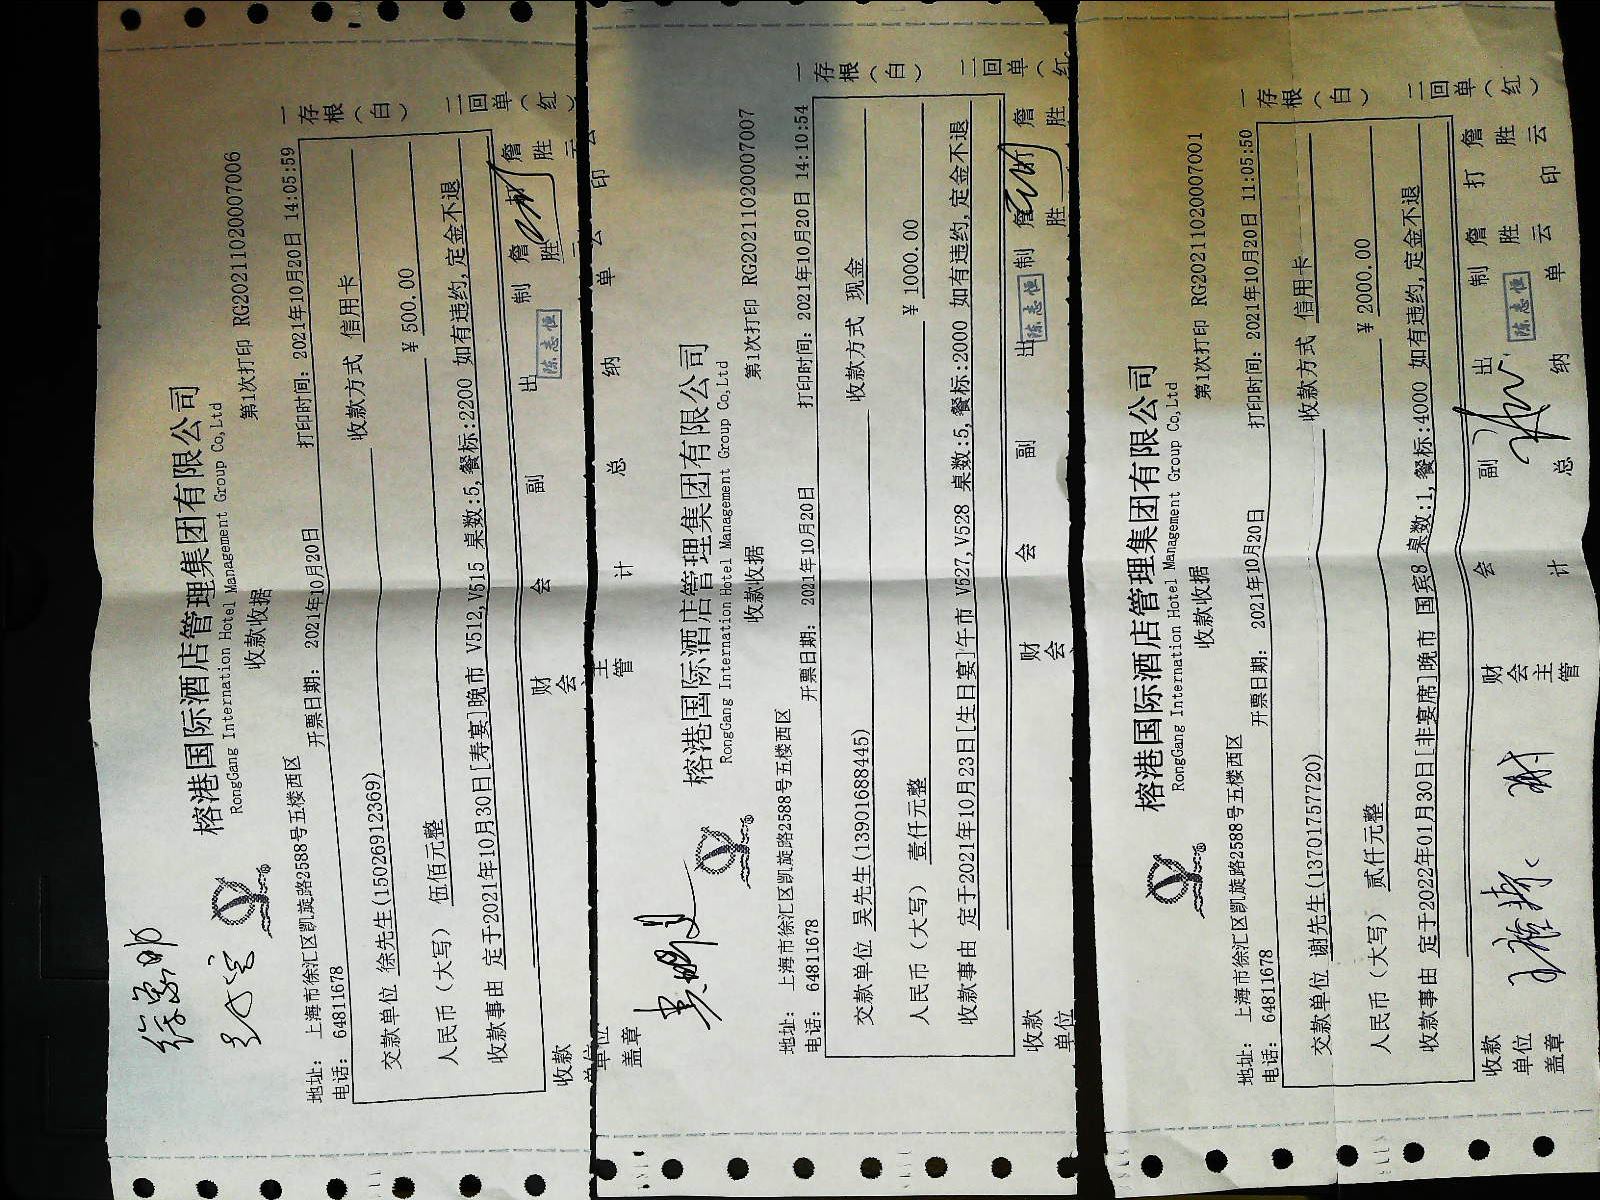 徐嘉明
榕港国际酒店管理集团有限公司
RongGang Internation Hotel Management Group Co,Ltd
收款收据
第1次打印 RG20211020007006
地址: 上海市徐汇区凯旋路2588号五楼西区
电话: 64811678
开票日期: 2021年10月20日
打印时间: 2021年10月20日 14:05:59
交款单位 徐先生(15026912369)
收款方式 信用卡
人民币(大写) 伍佰元整
¥ 500.00
收款事由 定于2021年10月30日[寿宴]晚市 V512,V515 桌数:5,餐标:2200 如有违约,定金不退
收款单位盖章
财会主管
副总
会计
出纳
陈志恒
制单
詹胜云
打印
詹胜云
一存根(白)
二回单(红)
榕港国际酒店管理集团有限公司
RongGang Internation Hotel Management Group Co,Ltd
收款收据
第1次打印 RG20211020007007
地址: 上海市徐汇区凯旋路2588号五楼西区
电话: 64811678
开票日期: 2021年10月20日
打印时间: 2021年10月20日 14:10:54
交款单位 吴先生(13901688445)
收款方式 现金
人民币(大写) 壹仟元整
¥ 1000.00
收款事由 定于2021年10月23日[生日宴]午市 V527,V528 桌数:5,餐标:2000 如有违约,定金不退
收款单位
财会
副
会
出
陈志恒
制
詹胜
詹胜
一存根(白)
二回单(红
榕港国际酒店管理集团有限公司
RongGang Internation Hotel Management Group Co,Ltd
收款收据
第1次打印 RG20211020007001
地址: 上海市徐汇区凯旋路2588号五楼西区
电话: 64811678
开票日期: 2021年10月20日
打印时间: 2021年10月20日 11:05:50
交款单位 谢先生(13701757720)
收款方式 信用卡
人民币(大写) 贰仟元整
¥ 2000.00
收款事由 定于2022年01月30日[非宴席]晚市 国宾8 桌数:1,餐标:4000 如有违约,定金不退
收款单位盖章
财会主管
会计
副总
出纳
陈志恒
制单
詹胜云
打印
詹胜云
一存根(白)
二回单(红)